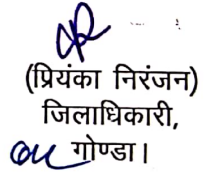 (प्रियंका निरंजन)
जिलाधिकारी,
गोण्डा।